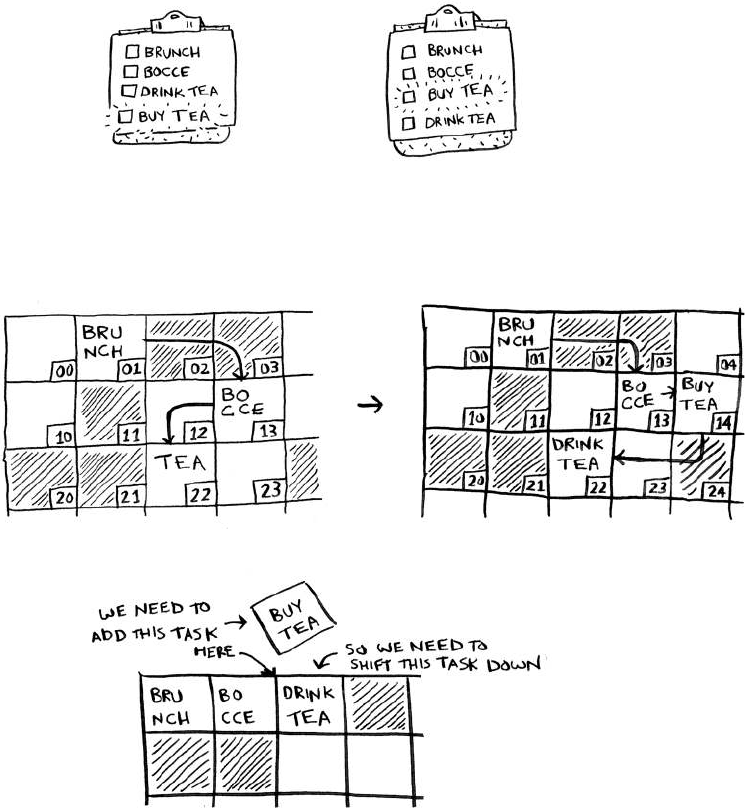 BRUNCH
BOCCE
DRINK TEA
BUY TEA
BRUNCH
BOCCE
BUY TEA
DRINK TEA
BRU
NCH
00
01
02
03
BO
CCE
10
11
12
13
TEA
20
21
22
23
BRU
NCH
00
01
02
03
04
BO
CCE
BUY
TEA
10
11
12
13
14
DRINK
TEA
20
21
22
23
24
WE NEED TO
ADD THIS TASK
HERE
BUY
TEA
SO WE NEED TO
SHIFT THIS TASK DOWN
BRU
NCH
BO
CCE
DRINK
TEA